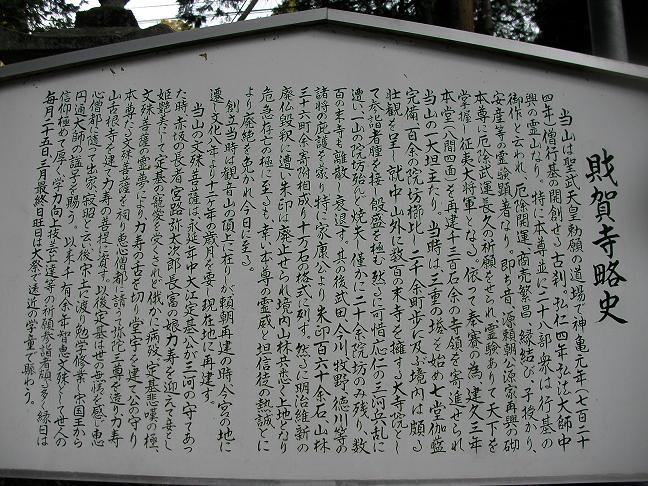 財賀寺略史
当山は聖武天皇勅願の道場で神亀元年(七百二十
四年)僧行基の開創せる古刹。弘仁四年、弘法大師中
興の霊山なり。特に本尊並に二十八部衆は行基の
御作と云われ、厄除開運、商売繁昌、縁結び、子授かり、
安産等の霊験顕著なり。即ち昔、源頼朝公源家再興の砌
本尊に厄除武運長久の祈願をせられ、霊験ありて天下を
掌握し征夷大将軍となる。依って奉賽の為、建久三年
本堂(八間四面)を再建、千三百石余の寺領を寄進せられ
当山の一大坦主たり。当時は三重の塔を始め七堂伽藍
完備、百余の院坊櫛比し、二千余町歩に及ぶ境内は頗る
壮観を呈し、就中、山外に数百の末寺を擁する大寺院とし
て参詣者踵を接し殷盛を極む。然るに可惜、応仁の三河兵乱に
遭い、一山の院坊殆んど焼失し、僅かに二十余院坊のみ残り、数
百の末寺も離散し、衰退す。其の後武田、今川、牧野、徳川等の
諸将の庇護を蒙り、特に家康公より朱印百六十余石、山林
三十六町余寄附相成り、十万石の格式を制す。然るに明治維新の
廃仏毀釈に遭い、朱印は廃止せられ、境内山林共悉く上地となり
危急存亡の極に至るも、幸い本尊の霊威と坦信徒の熱誠とに
より廃絶を免れ今日に至る。
創立当時は観音山の頂上に在りしが頼朝再建の時、今宮の地に
遷し文化八年より十二ヶ年の歳月を要し、現在地に再建す。
当山の文殊菩薩は、永延年中大江定基公が三河の守であっ
た時、赤後の長者宮路弥太次郎長富の娘、力寿を迎えて妾とし
姫艶美にして定基の寵愛を受くされど、俄かに病歿、定基悲嘆の極、
文殊菩薩の霊夢により力寿の舌を切り堂宇を建て公の守り
本尊たる文殊菩薩を祀り、恵心僧都に請うて弥陀三尊を造り力寿
山舌根寺を建て力寿の菩提に資す。以後定基は世の無情を感じ恵
心僧都に随って出家、寂照と云い後、宋土に渡り勉学修業、宋国王から
円通大師の謚号を賜う。以来千有余年、智恵文殊として世人の
信仰極めて厚く、学力向上、技芸上達等の祈願参詣者頗る多く、縁日は
毎月二十五日、三月最終日旺日は大祭で遠近の学童で賑わう。